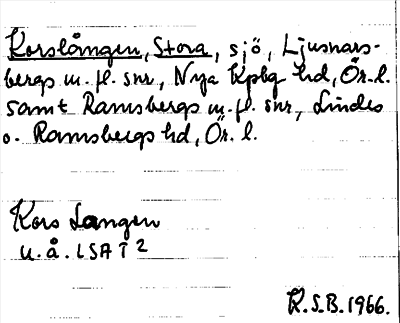 Korslången, Stora, sjö, Ljusnars-
bergs m. fl. snr, Nya Kpbg hd, Ör. l.
samt Ramsbergs m. fl. snr, Lindes
o. Ramsbergs hd, Ör. l.
Kors Langen
u. å. LSA T 2
R.S.B. 1966.